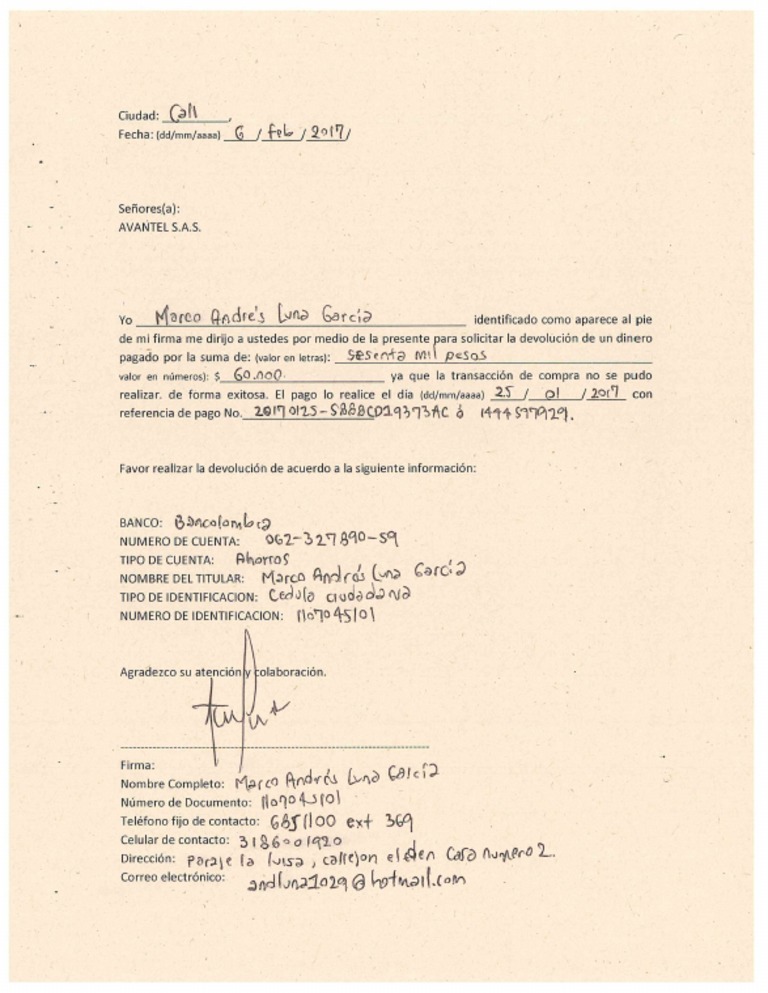 Ciudad: Cali,
Fecha: (dd/mm/aaaa) 6 / feb / 2017/
Señores(a):
AVANTEL S.A.S.
Yo Marco Andrés Luna García identificado como aparece al pie
de mi firma me dirijo a ustedes por medio de la presente para solicitar la devolución de un dinero
pagado por la suma de: (valor en letras): Sesenta mil pesos
valor en números): $ 60.000. ya que la transacción de compra no se pudo
realizar. de forma exitosa. El pago lo realice el día (dd/mm/aaaa) 25 / 01 / 2017 con
referencia de pago No. 20170125-5888CD19373AC ó 1444577929.
Favor realizar la devolución de acuerdo a la siguiente información:
BANCO: Bancolombia
NUMERO DE CUENTA: 062-327890-59
TIPO DE CUENTA: Ahorros
NOMBRE DEL TITULAR: Marco Andrés Luna García
TIPO DE IDENTIFICACION: Cedula ciudadania
NUMERO DE IDENTIFICACION: 1107045101
Agradezco su atención y colaboración.
Firma:
Nombre Completo: Marco Andrés Luna García
Número de Documento: 1107045101
Teléfono fijo de contacto: 6851100 ext 369
Celular de contacto: 3186001920
Dirección: Paraje la luisa, callejon el eden Casa numero 2.
Correo electrónico: andluna1029@hotmail.com